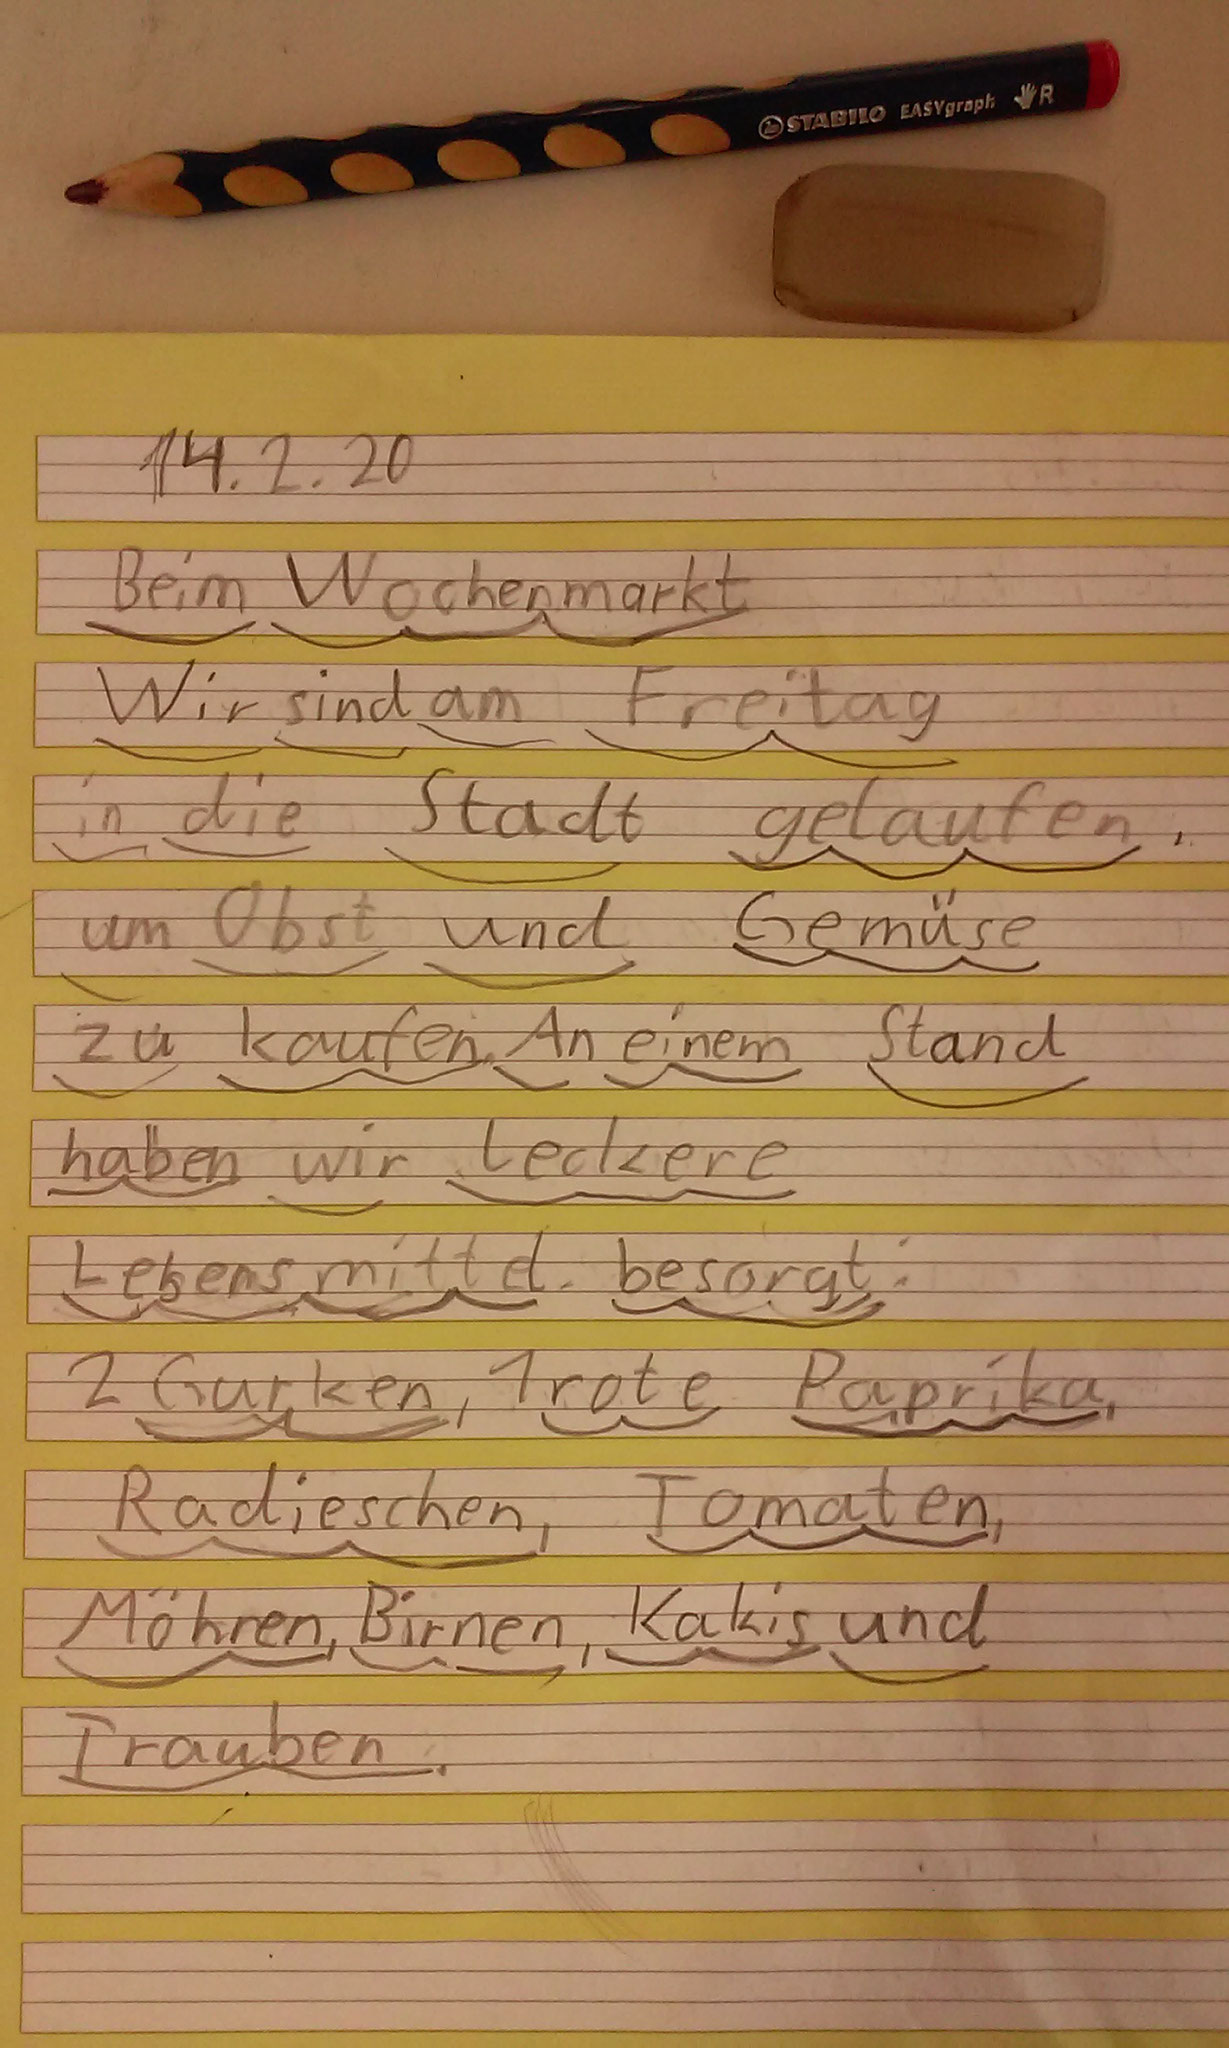 STABILO EASYgraph R
14.2.20
Beim Wochenmarkt
Wir sind am Freitag
in die Stadt gelaufen,
um Obst und Gemüse
zu kaufen. An einem Stand
haben wir leckere
Lebensmittel besorgt:
2 Gurken, 1 rote Paprika,
Radieschen, Tomaten,
Möhren, Birnen, Kakis und
Trauben.